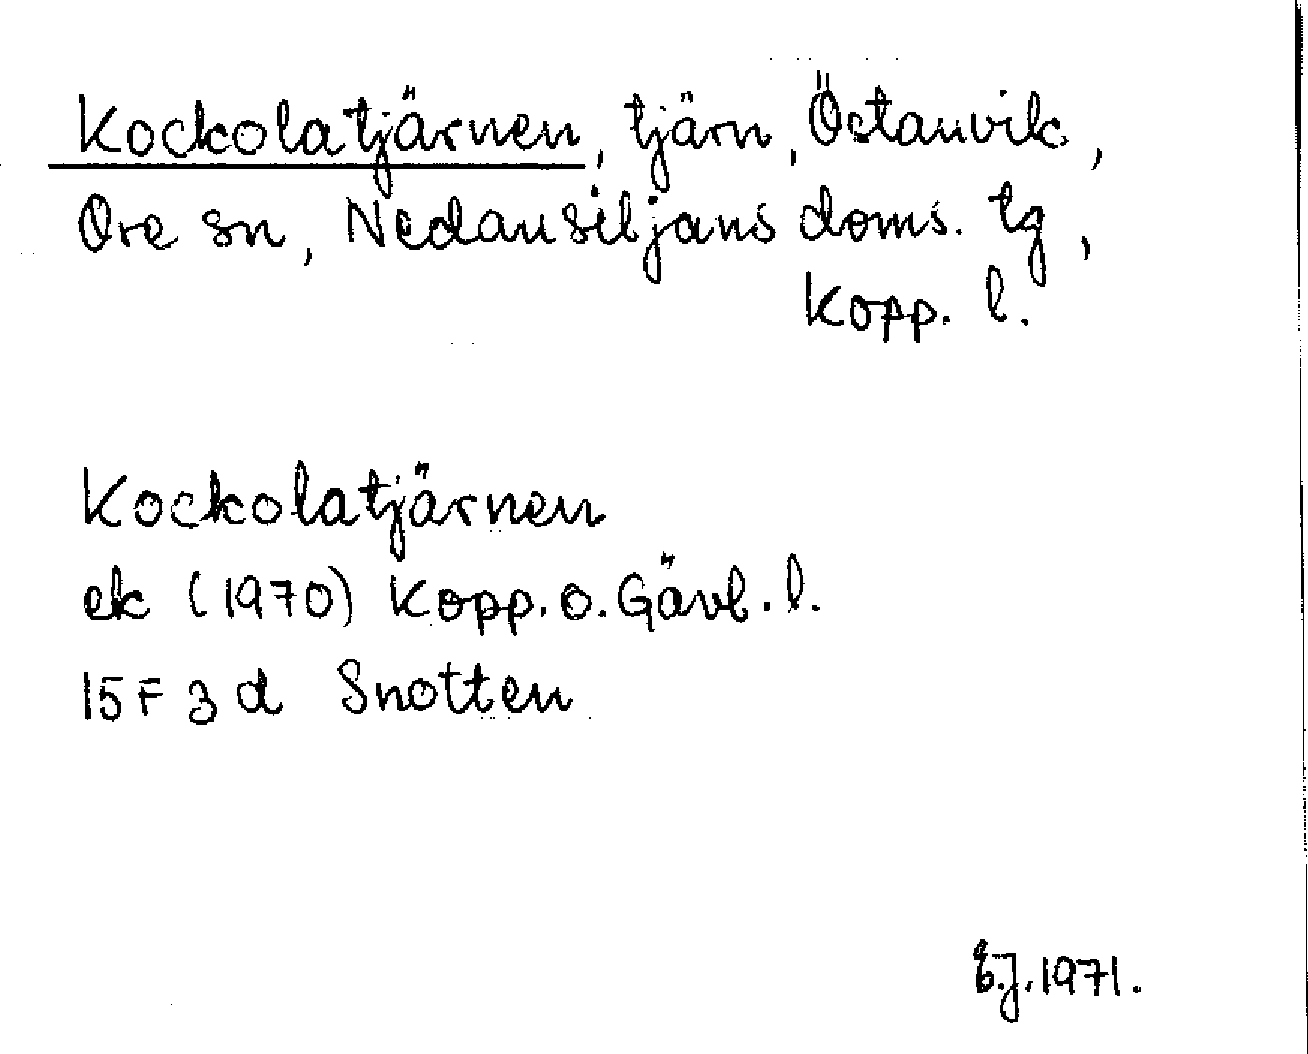 Kockolatjärnen, tjärn, Östanvik,
Ore sn, Nedansiljans doms. tg,
Kopp. l.
Kockolatjärnen
ek (1970) Kopp. o. Gävl. l.
15 F 3 d Snotten
E.J. 1971.